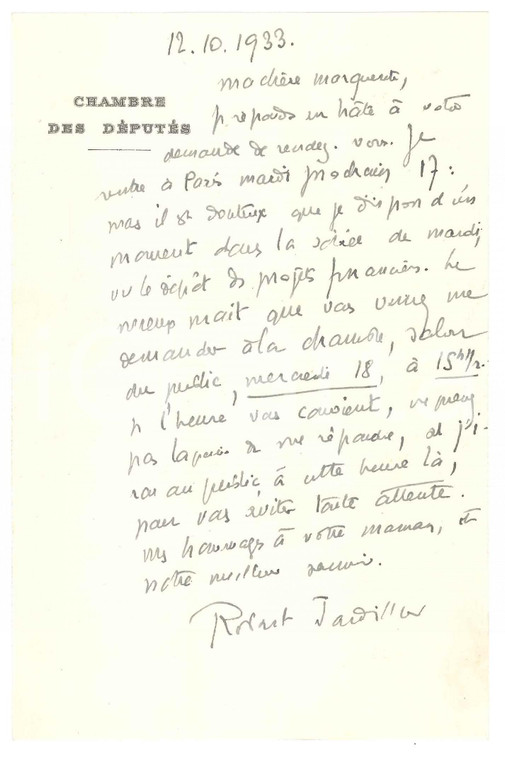 12.10.1933.
CHAMBRE
DES DÉPUTÉS
Ma chère Marguerite,
je réponds en hâte à votre
demande de rendez-vous. Je
rentre à Paris mardi prochain 17 :
mais il est douteux que je dispose d'un
moment dans la soirée de mardi,
vu le dépôt des projets financiers. Le
mieux serait que vous veniez me
demander à la Chambre, salon
du public, mercredi 18, à 15h1/2.
Si l'heure vous convient, ne prenez
pas la peine de me répondre, et j'i-
rai au public à cette heure là,
pour vous éviter toute attente.
Mes hommages à votre maman, et
notre meilleur souvenir.
Robert Jardillier